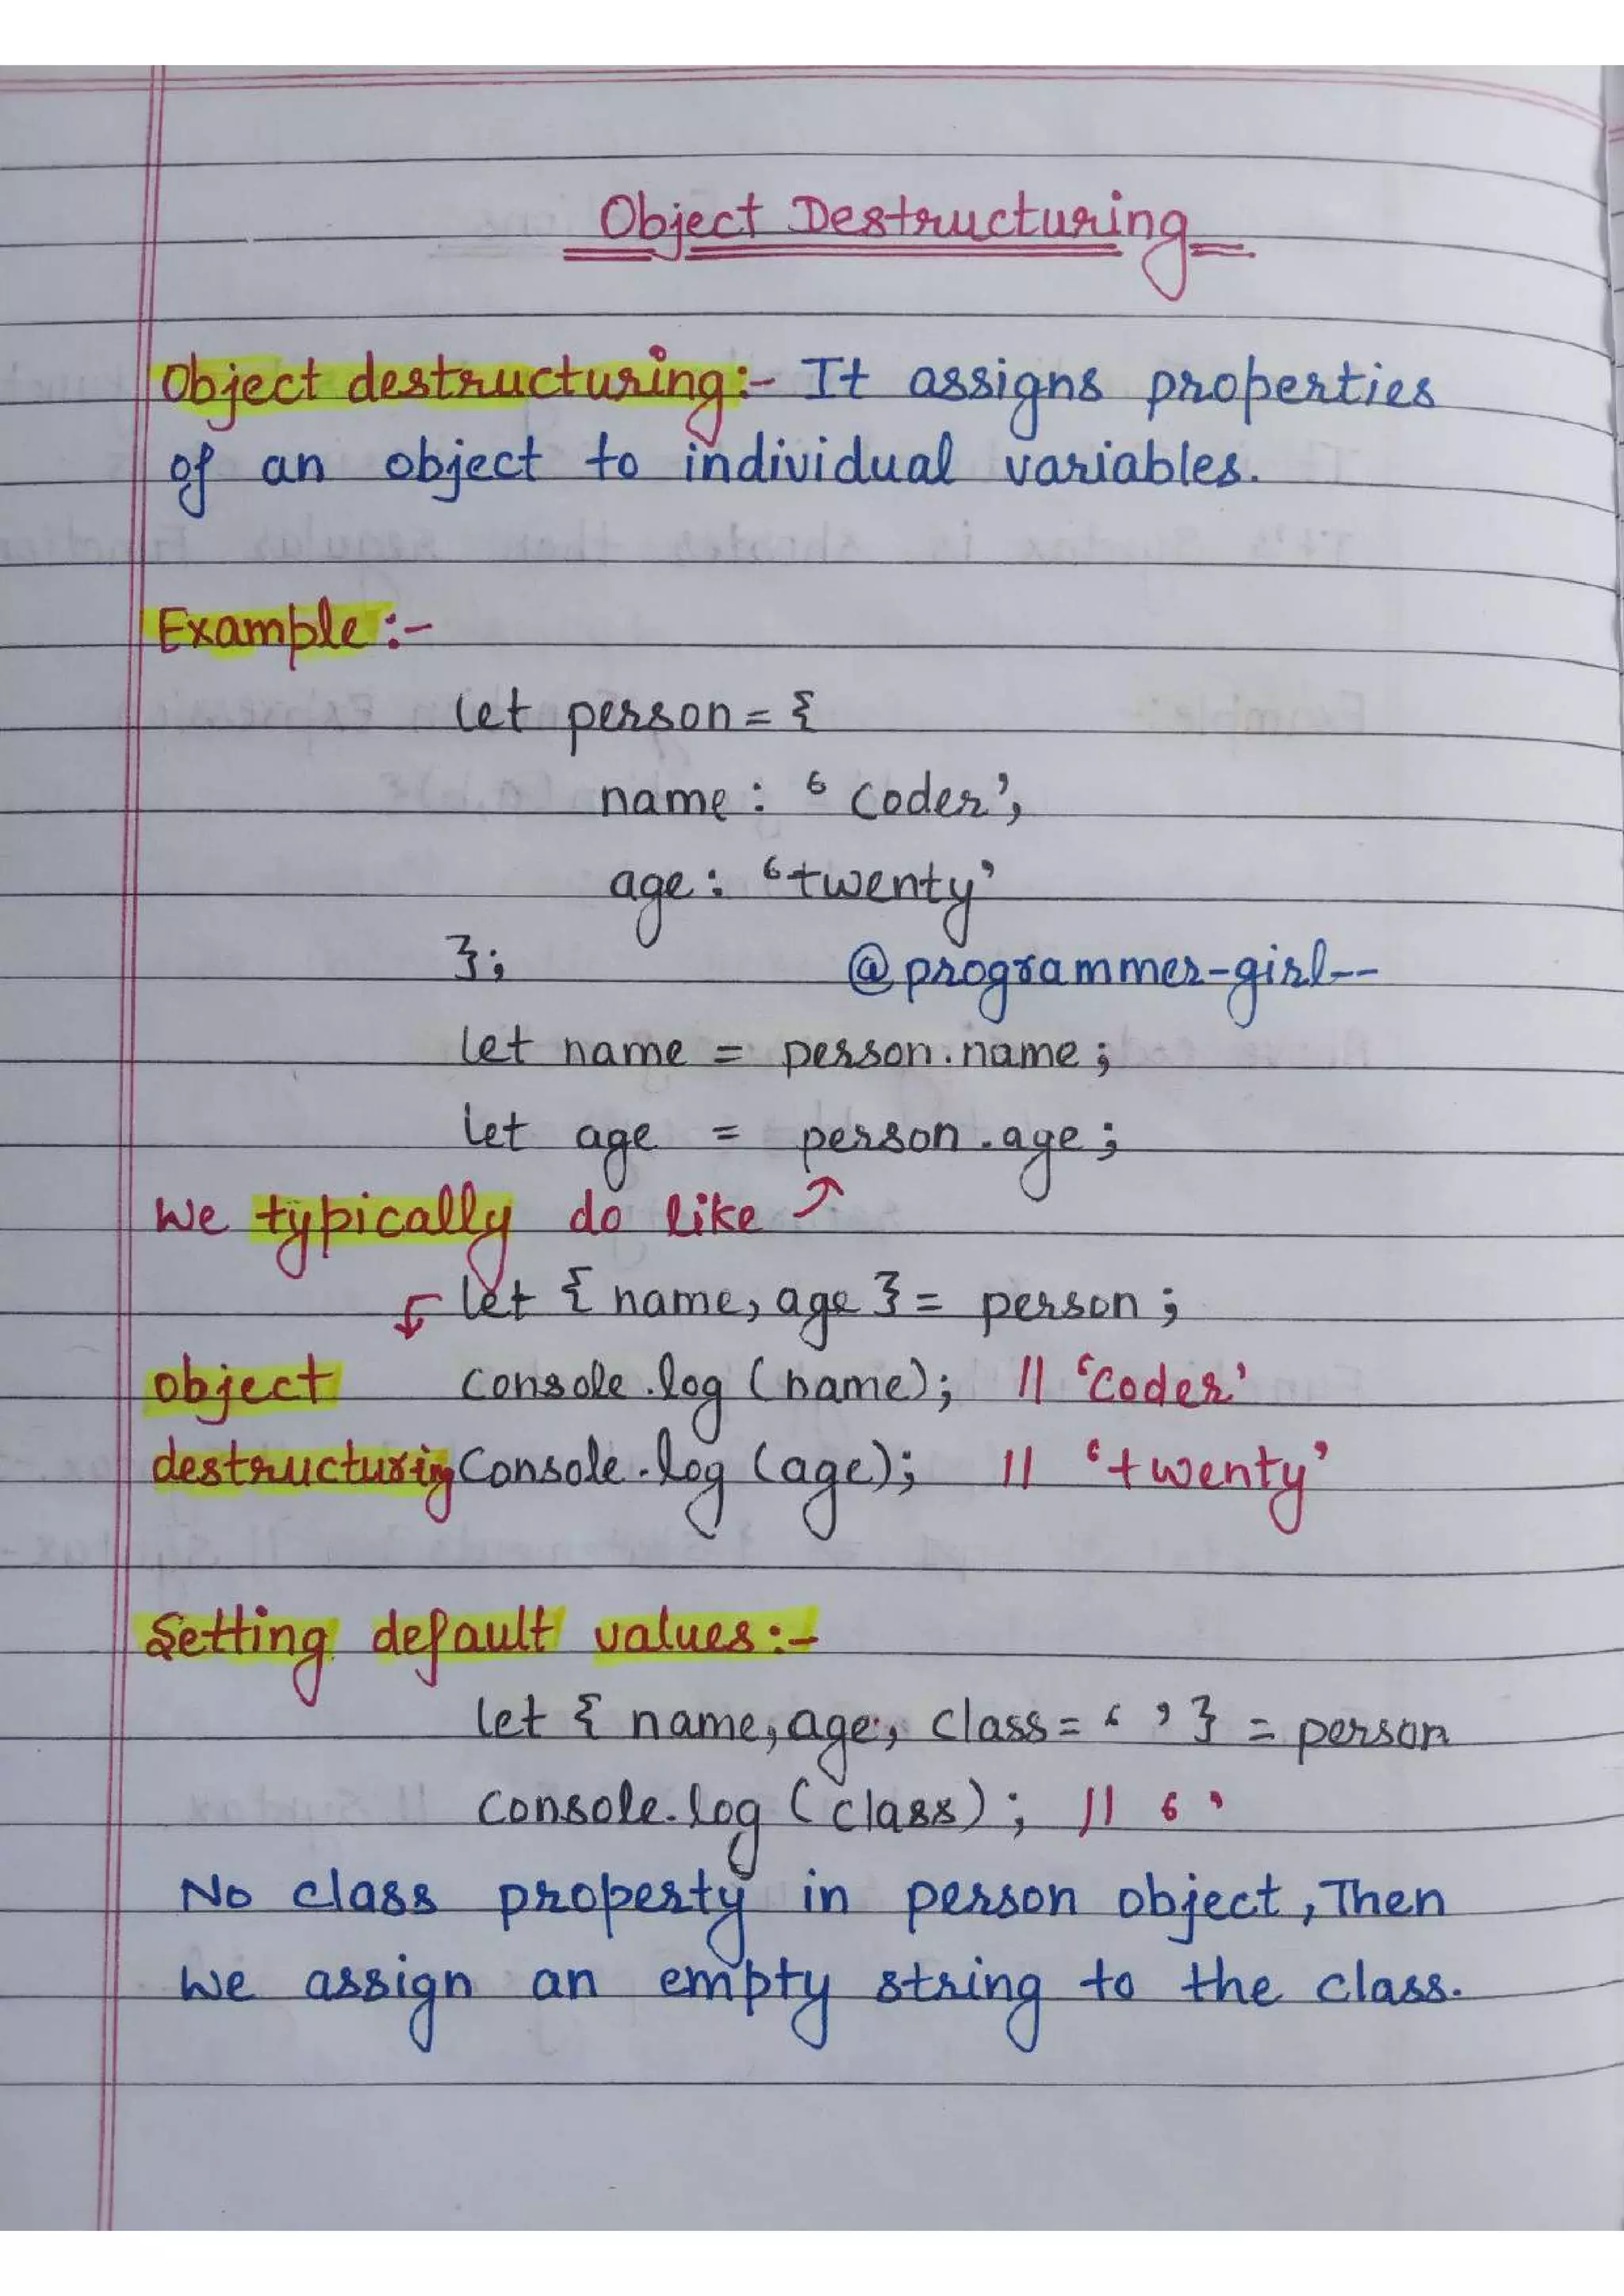 Object Destructuring
Object destructuring:- It assigns properties
of an object to individual variables.
Example:-
let person = {
name: ‘coder’,
age: ‘twenty’
};
@programmer-girl--
let name = person.name;
let age = person.age;
We typically do like
let { name, age } = person;
object console.log (name); // ‘coder’
destructuring Console.log (age); // ‘twenty’
Setting default values:-
let { name, age, class = ‘ ’ } = person
console.log (class); // ‘ ’
No class property in person object, Then
we assign an empty string to the class.